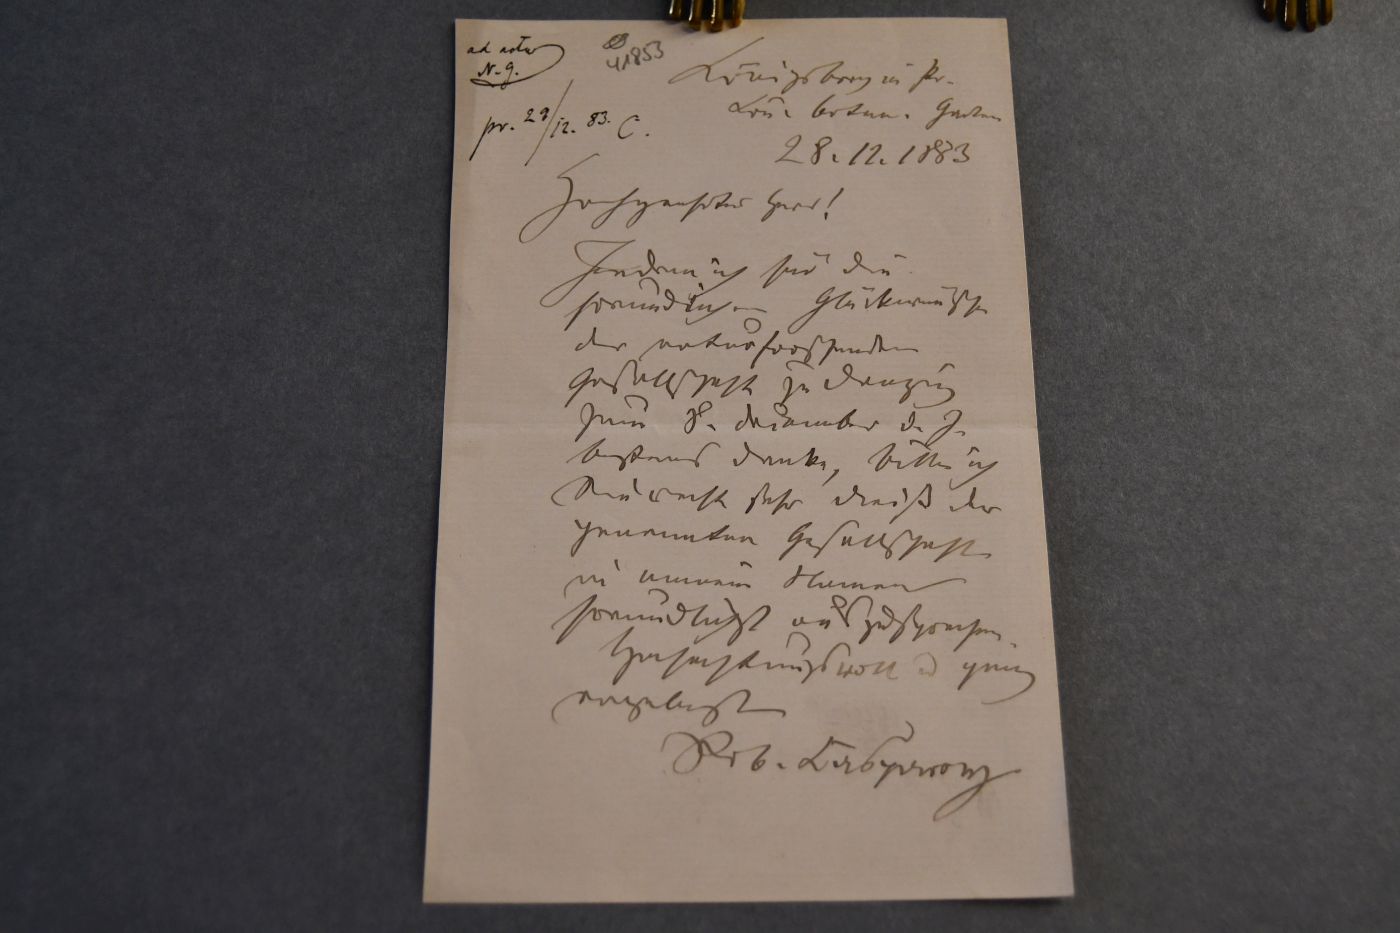 ad acta
N. G.
41853
pr. 29/12. 83. C.
Königsberg in Pr.
Kön. botan. Garten
28.12.1883
Hochgeehrter Herr!
Indem ich für die
freundlichen Glückwünsche
der naturforschenden
Gesellschaft zu Danzig
zum 8. December d. J.
bestens danke, bitte ich
Sie recht sehr dieß der
genannten Gesellschaft
in meinem Namen
freundlichst auszusprechen.
Hochachtungsvoll u ganz
ergebenst
Rob. Caspary